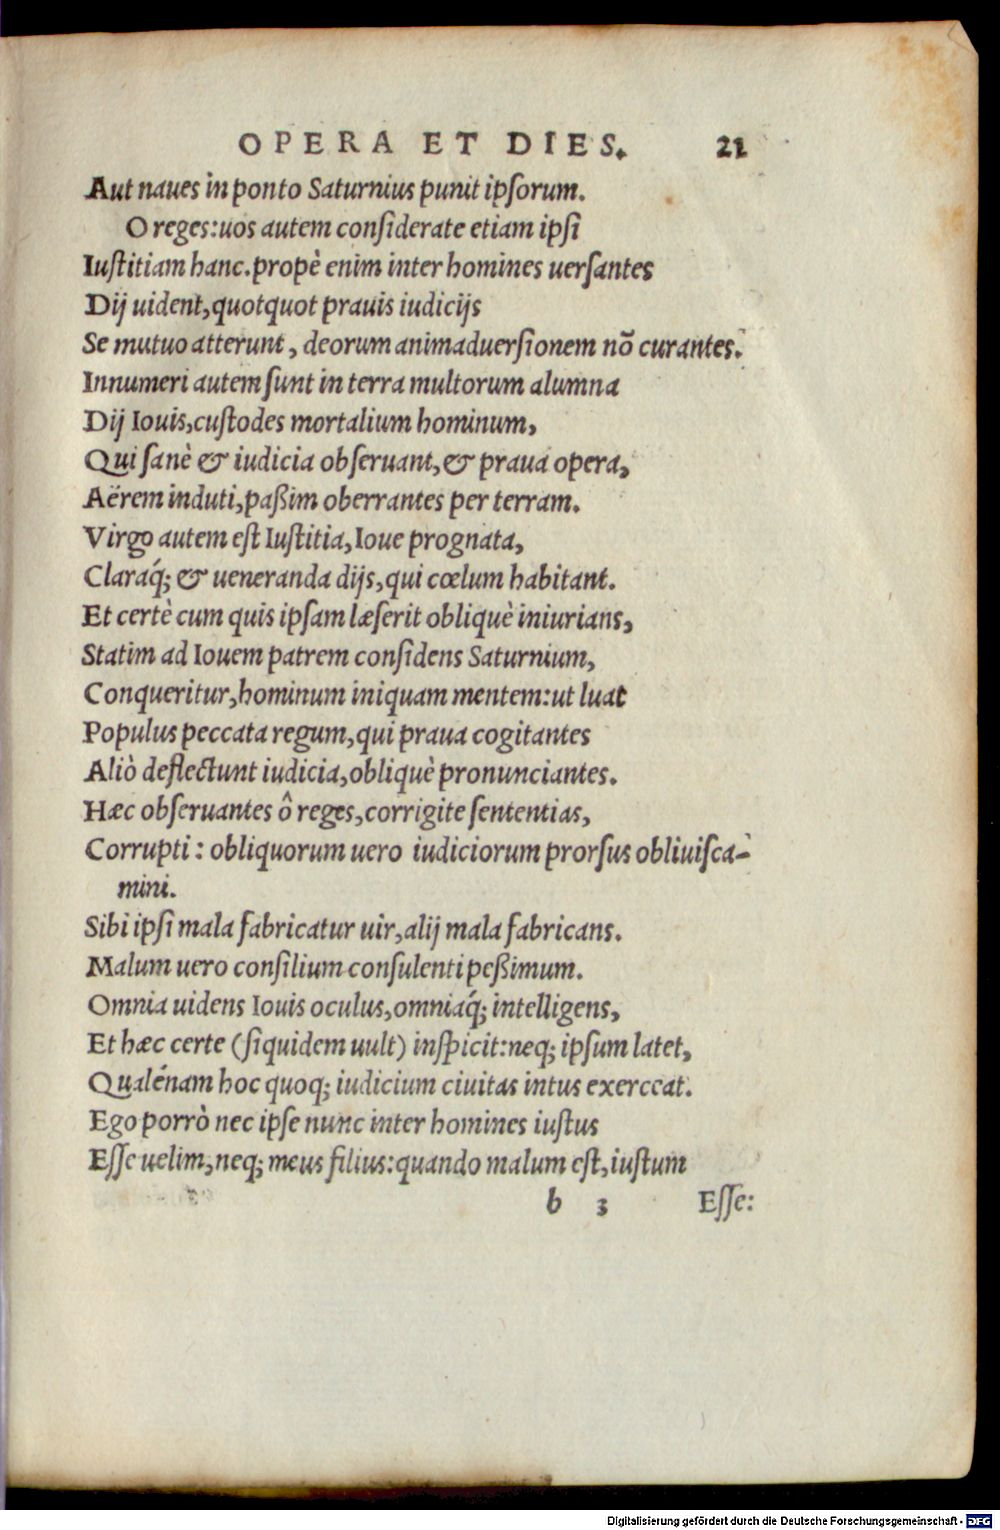 OPERA ET DIES. 21
Aut naues in ponto Saturnius punit ipsorum.
O reges:uos autem considerate etiam ipsi
Iustitiam hanc.propè enim inter homines uersantes
Dij uident,quotquot prauis iudicijs
Se mutuo atterunt, deorum animaduersionem nõ curantes.
Innumeri autem sunt in terra multorum alumna
Dij Iouis,custodes mortalium hominum,
Qui sanè & iudicia obseruant,& praua opera,
Aërem induti,paßim oberrantes per terram.
Virgo autem est Iustitia,Ioue prognata,
Claraq́; & ueneranda dijs,qui cœlum habitant.
Et certè cum quis ipsam læserit obliquè iniurians,
Statim ad Iouem patrem considens Saturnium,
Conqueritur,hominum iniquam mentem:ut luat
Populus peccata regum,qui praua cogitantes
Aliò deflectunt iudicia,obliquè pronunciantes.
Hæc obseruantes ô reges,corrigite sententias,
Corrupti: obliquorum uero iudiciorum prorsus obliuisca-
mini.
Sibi ipsi mala fabricatur uir,alij mala fabricans.
Malum uero consilium consulenti peßimum.
Omnia uidens Iouis oculus,omniaq́; intelligens,
Et hæc certe (siquidem uult) inspicit:neq; ipsum latet,
Qualénam hoc quoq; iudicium ciuitas intus exerceat.
Ego porrò nec ipse nunc inter homines iustus
Esse uelim,neq; meus filius:quando malum est,iustum
b 3 Esse:
Digitalisierung gefördert durch die Deutsche Forschungsgemeinschaft - DFG